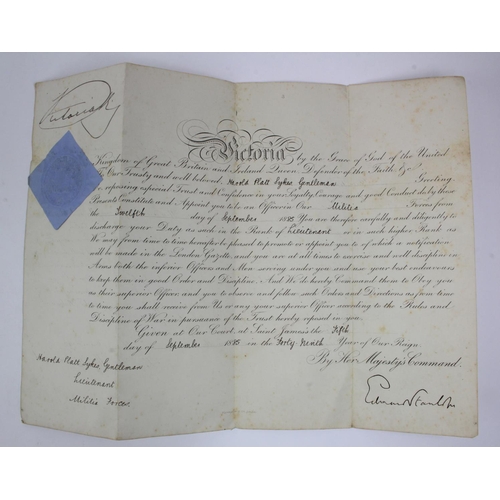 Victoria R
Victoria by the Grace of God of the United
Kingdom of Great Britain and Ireland Queen Defender of the Faith &c
To Our Trusty and well beloved Harold Platt Sykes Gentleman Greeting
We, reposing especial Trust and Confidence in your Loyalty, Courage and good Conduct do by these
Presents Constitute and Appoint you to be an Officer in Our Militia Forces from
the Twelfth day of September 1885 You are therefore carefully and diligently to
discharge your Duty as such in the Rank of Lieutenant or in such higher Rank as
We may from time to time hereafter be pleased to promote or appoint you to of which a notification
will be made in the London Gazette, and you are at all times to exercise and well discipline in
Arms both the inferior Officers and Men serving under you and use your best endeavours
to keep them in good Order and Discipline. And We do hereby Command them to Obey you
as their superior Officer and you to observe and follow such Orders and Directions as from time
to time you shall receive from Us or any your superior Officer according to the Rules and
Discipline of War in pursuance of the Trust hereby reposed in you.
Given at Our Court at Saint James's the Fifth
day of September 1885 in the Forty Ninth Year of Our Reign
By Her Majesty's Command.
Harold Platt Sykes Gentleman
Lieutenant
Militia Forces